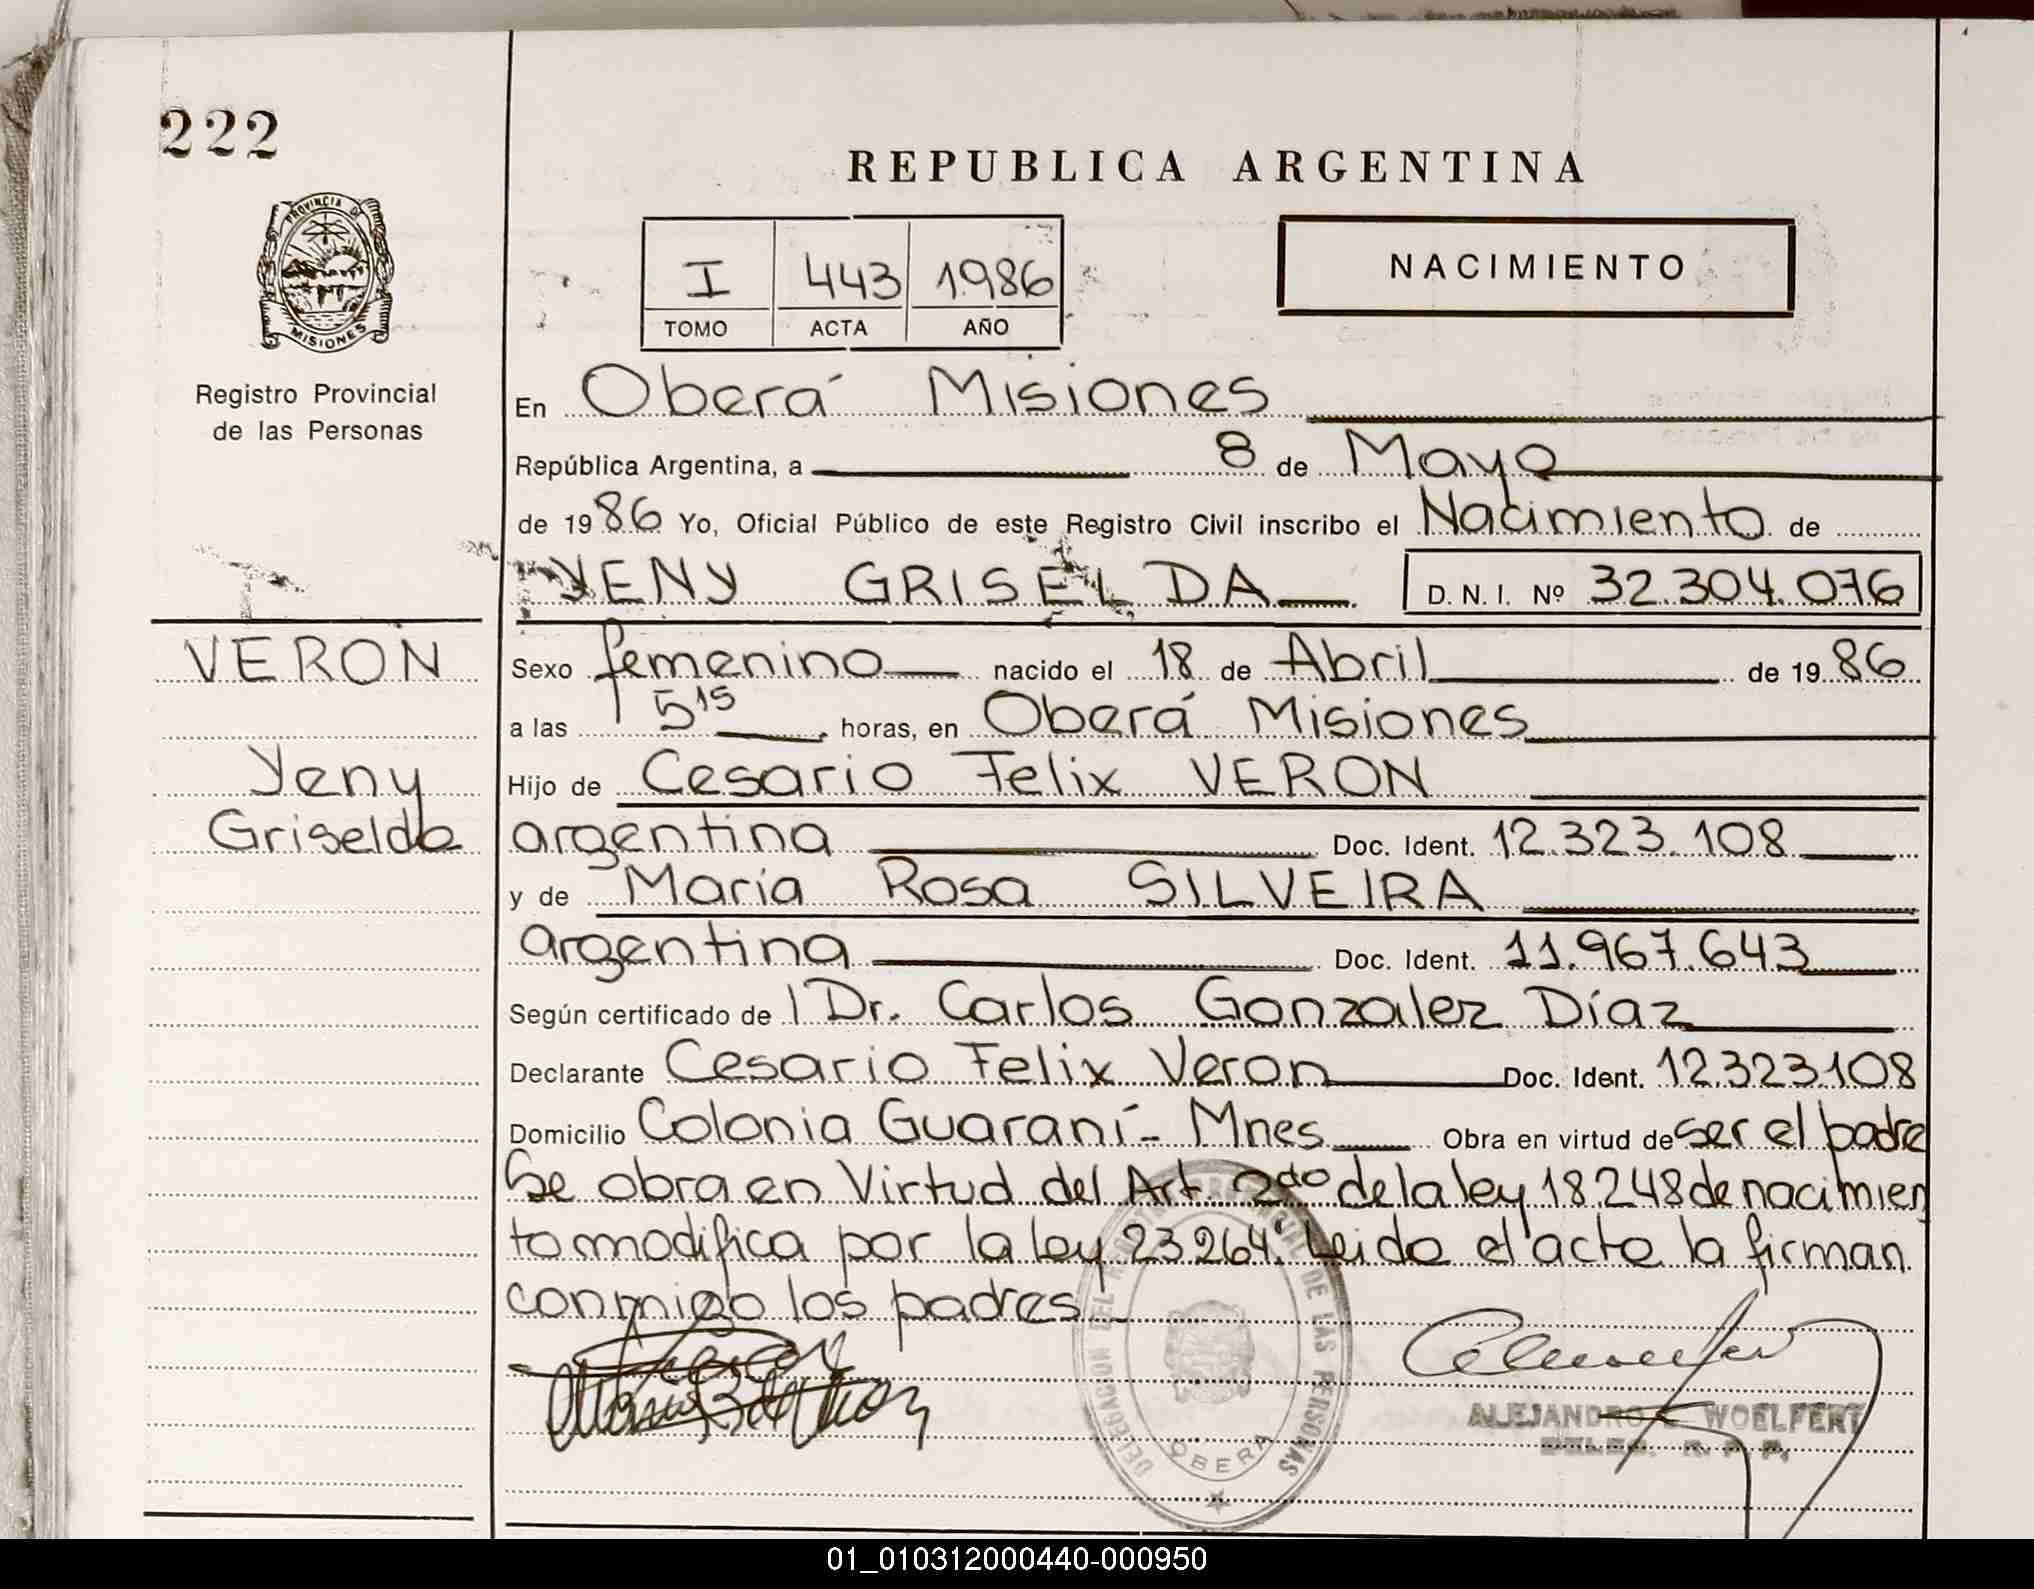 222
REPUBLICA ARGENTINA
PROVINCIA DE
MISIONES
I 443 1986
TOMO ACTA AÑO
NACIMIENTO
Registro Provincial
de las Personas
En Oberá Misiones
República Argentina, a 8 de Mayo
de 1986 Yo, Oficial Público de este Registro Civil inscribo el Nacimiento de
YENY GRISELDA D. N. I. Nº 32.304.076
VERON
Yeny
Griselda
Sexo femenino nacido el 18 de Abril de 1986
a las 5 15 horas, en Oberá Misiones
Hijo de Cesario Felix VERON
argentina Doc. Ident. 12.323.108
y de Maria Rosa SILVEIRA
argentina Doc. Ident. 11.967.643
Según certificado de Dr. Carlos Gonzalez Díaz
Declarante Cesario Felix Veron Doc. Ident. 12.323.108
Domicilio Colonia Guaraní - Mnes Obra en virtud de ser el padre
Se obra en Virtud del Art. 2do de la ley 18.248 de nacimien
to modifica por la ley 23.264. Leido el acta la firman
conmigo los padres
DELEGACION DEL REGISTRO PROVINCIAL DE LAS PERSONAS
OBERA
ALEJANDRO WOELFERT
DELEG. R. P. P.
01_010312000440-000950